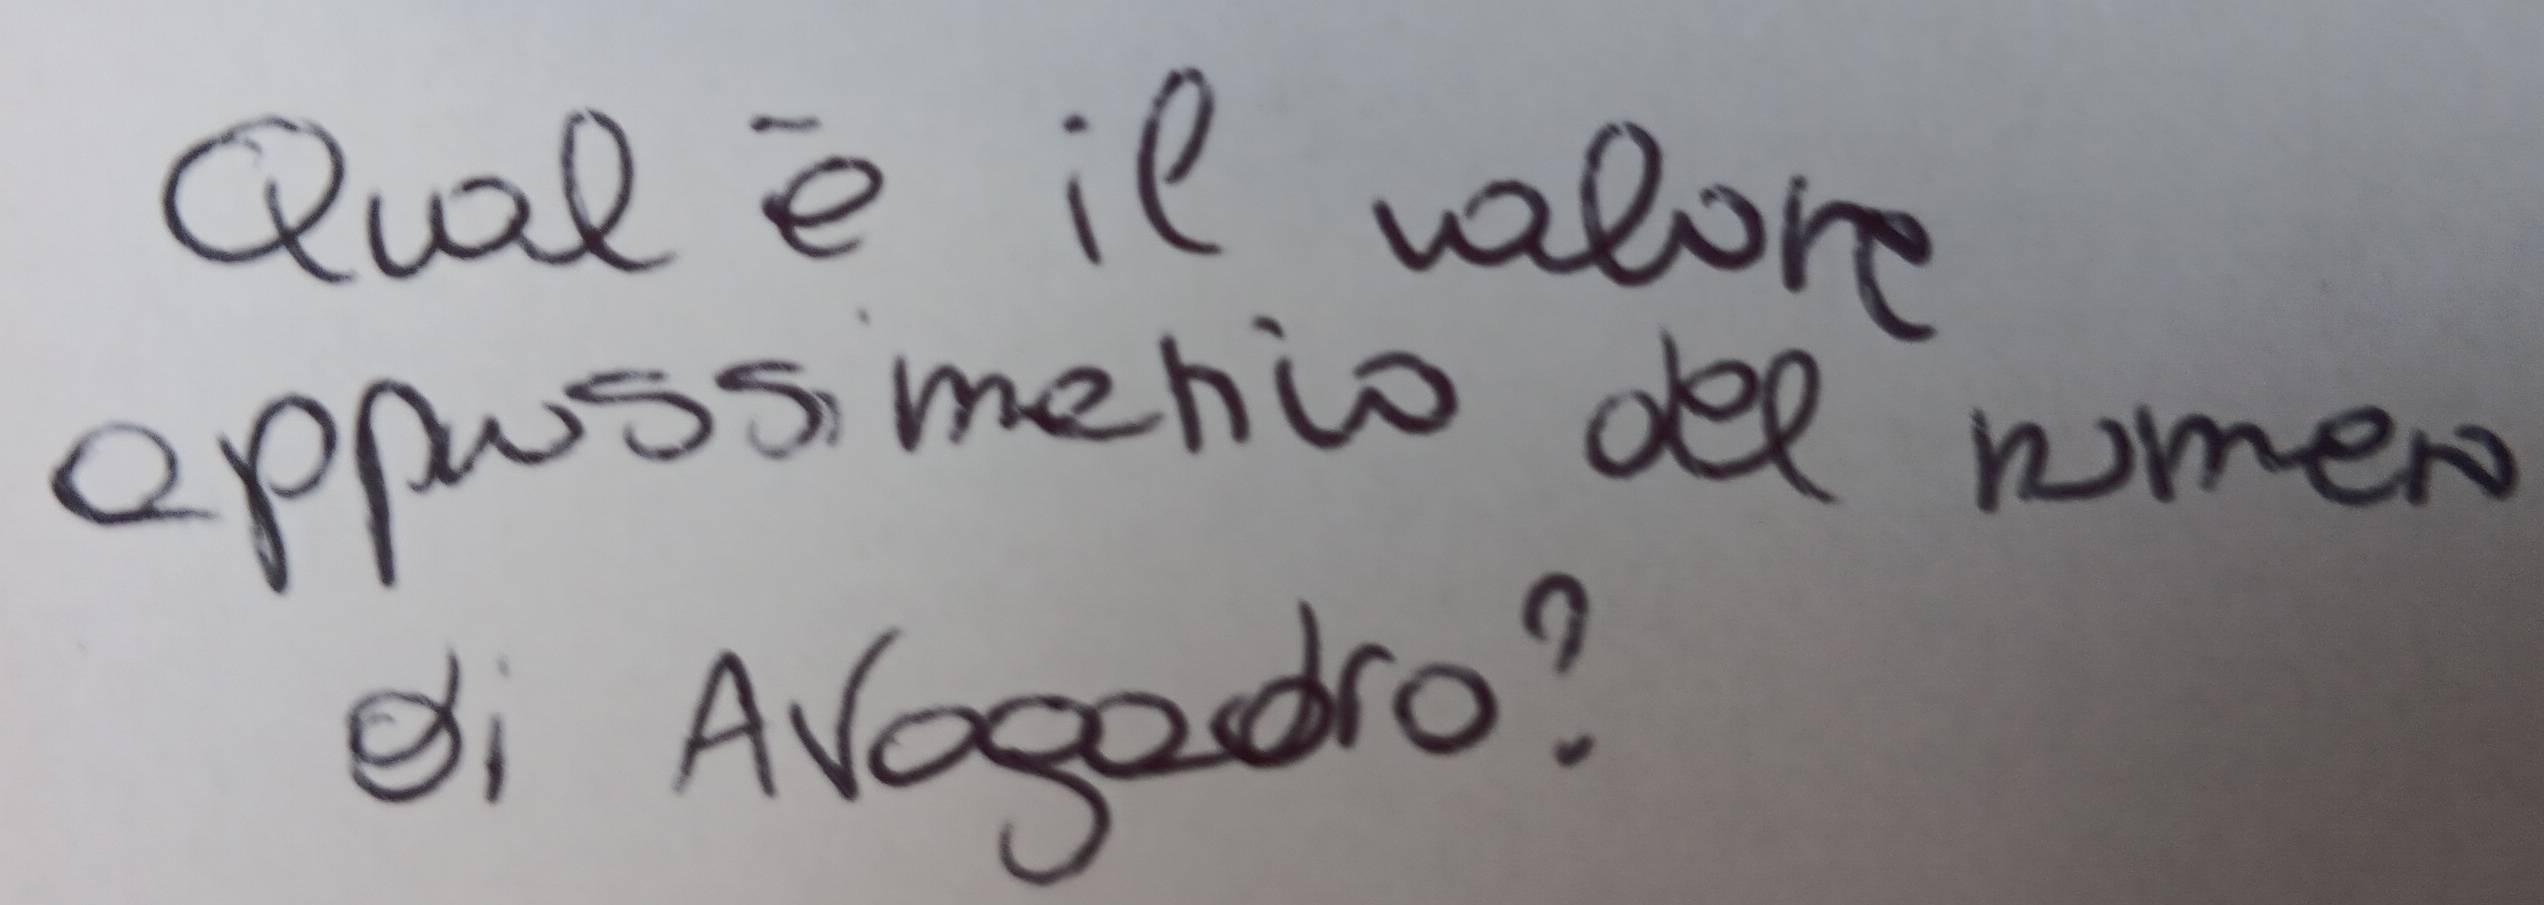 Qual è il valore
approssimativo del numero
di Avogadro?